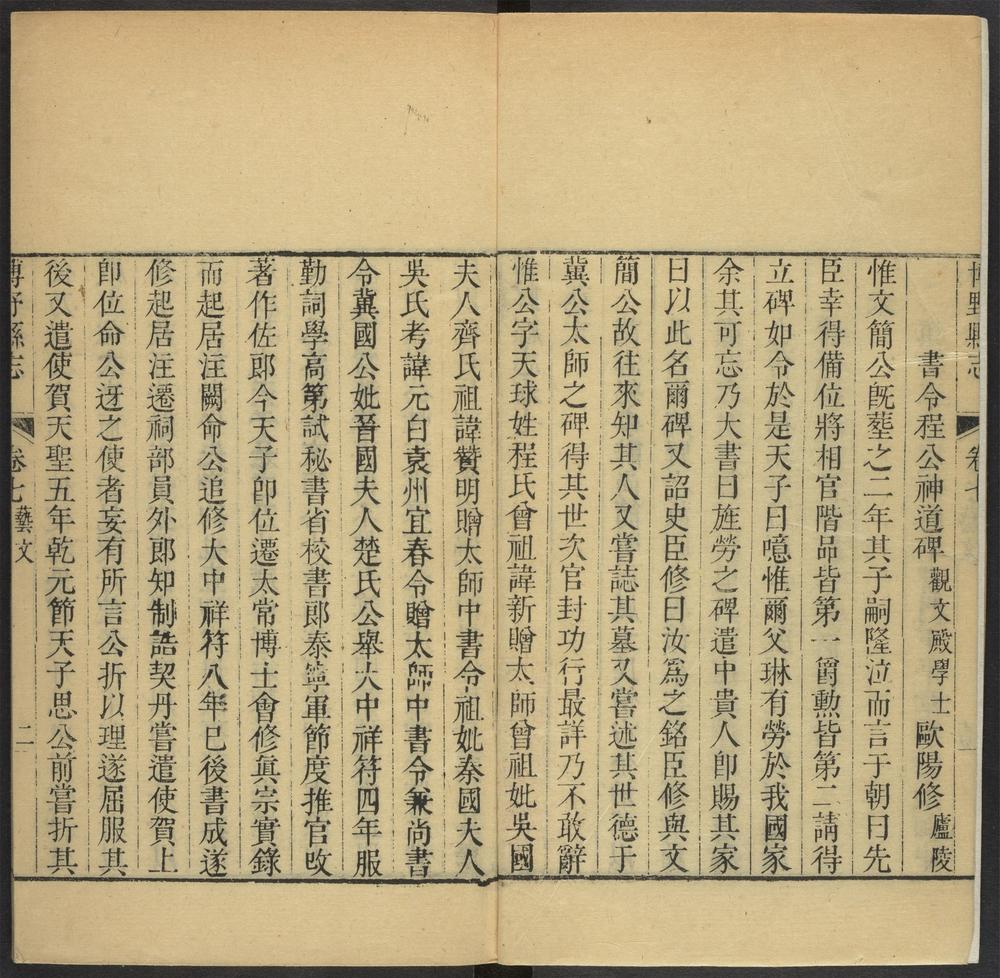 博野縣志
卷七
書令程公神道碑 觀文殿學士 歐陽修 廬陵
惟文簡公既塟之二年其子嗣隆泣而言于朝曰先
臣幸得備位將相官階品皆第一爵勲皆第二請得
立碑如令於是天子曰噫惟爾父琳有勞於我國家
余其可忘乃大書曰旌勞之碑遣中貴人卽賜其家
曰以此名爾碑又詔史臣修曰汝爲之銘臣修與文
簡公故往來知其人又嘗誌其墓又嘗述其世德于
冀公太師之碑得其世次官封功行最詳乃不敢辭
惟公字天球姓程氏曾祖諱新贈太師曾祖妣吳國
夫人齊氏祖諱贊明贈太師中書令祖妣秦國夫人
吳氏考諱元白袁州宜春令贈太師中書令兼尚書
令冀國公妣晉國夫人楚氏公舉大中祥符四年服
勤詞學高第試秘書省校書郎泰寧軍節度推官改
著作佐郎今天子卽位遷太常博士會修眞宗實錄
而起居注闕命公追修大中祥符八年巳後書成遂
修起居注遷祠部員外郎知制誥契丹嘗遣使賀上
卽位命公迓之使者妄有所言公折以理遂屈服其
後又遣使賀天聖五年乾元節天子思公前嘗折其
博野縣志
卷七 藝文
二